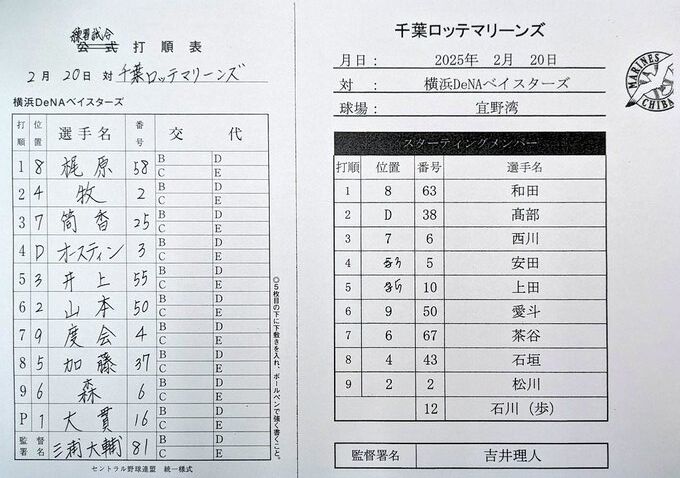 練習試合
公式 打順表
2月 20日 対 千葉ロッテマリーンズ
横浜DeNAベイスターズ
打順 位置 選手名 番号 交代
1 8 梶原 58 B D C E
2 4 牧 2 B D C E
3 7 筒香 25 B D C E
4 D オースティン 3 B D C E
5 3 井上 55 B D C E
6 2 山本 50 B D C E
7 9 度会 4 B D C E
8 5 加藤 37 B D C E
9 6 森 6 B D C E
P 1 大貫 16 B D C E
監督署名 三浦大輔 81 B D C E
セントラル野球連盟 統一様式
◎5枚目の下に下敷きを入れ、ボールペンで強く書くこと。
千葉ロッテマリーンズ
月日: 2025年 2月 20日
対 : 横浜DeNAベイスターズ
球場: 宜野湾
MARINES
CHIBA
スターティングメンバー
打順 位置 番号 選手名
1 8 63 和田
2 D 38 髙部
3 7 6 西川
4 3 5 安田
5 5 10 上田
6 9 50 愛斗
7 6 67 茶谷
8 4 43 石垣
9 2 2 松川
12 石川（歩）
監督署名 吉井理人